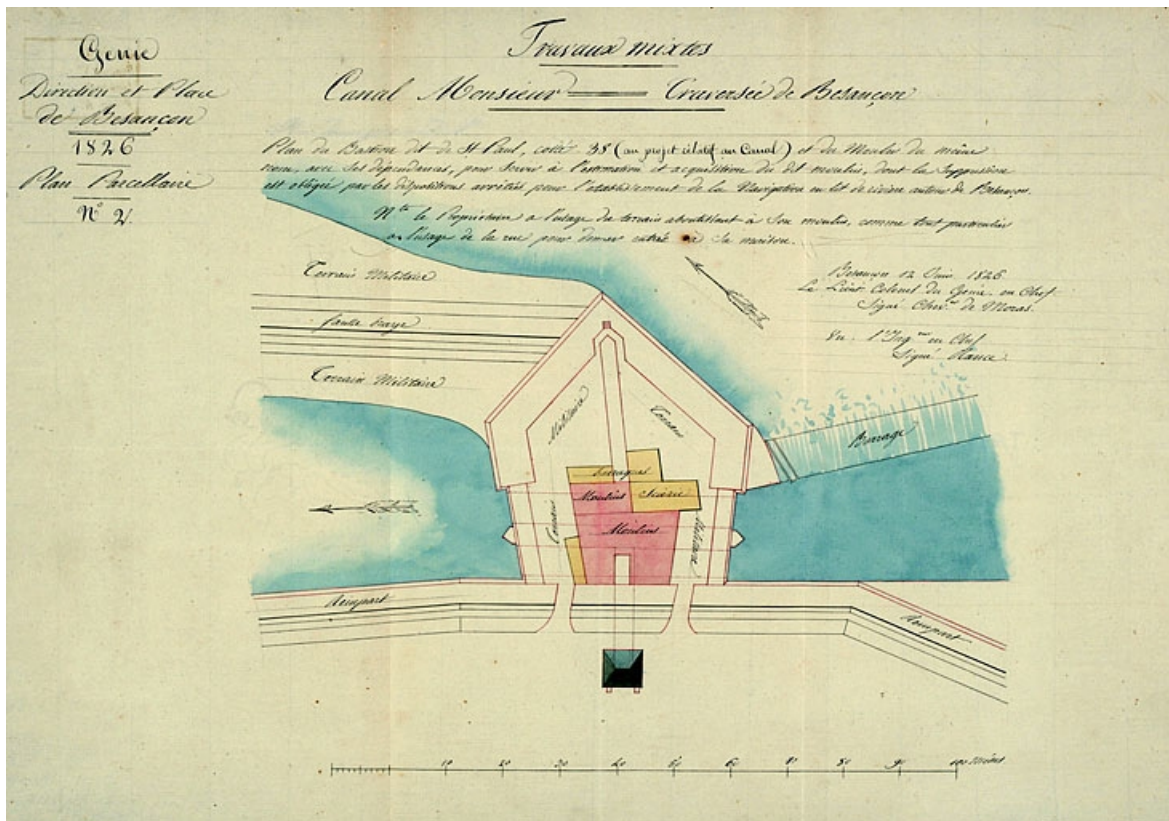 Génie
Direction et Place
de Besançon
1826
Plan Parcellaire
N° 2
Travaux mixtes
Canal Monsieur Traversée de Besançon
Plan du Bastion dit de St Paul, coté 38 (au projet rélatif au Canal) et du Moulin du même
nom, avec ses dépendances, pour servir à l'estimation et acquisition du dit moulin, dont la suppression
est obligée par les dispositions arrêtées pour l'établissement de la Navigation en lit de rivière autour de Besançon.
Nta le Propriétaire a l'usage du terrain aboutissant à son moulin, comme tout particulier
a l'usage de la rue pour donner entrée à sa maison.
Besançon 12 Juin 1826
Le Lieut Colonel du Génie en Chef
Signé Chevr de Moras
Vu l'Ingr en Chef
Signé
Terrain Militaire
fausse braye
Terrain Militaire
Militaire
Terrain
Barrage
Moulins
Scierie
Moulins
Terrain
Militaire
Rempart
Rempart
10 20 30 40 50 60 70 80 90 100 Mètres